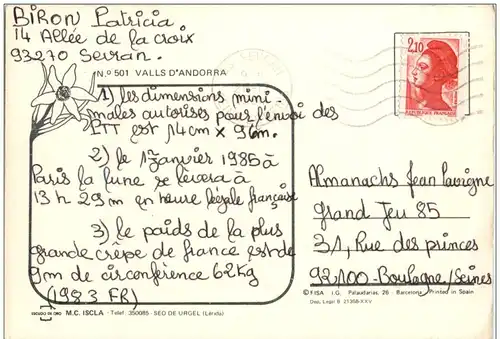 BIRON Patricia
14 Allée de la croix
93270 Sevran.
N.º 501 VALLS D'ANDORRA
1) les dimensions mini-
males autorisées pour l'envoi des
PTT est 14cm x 9cm.
2) le 1 janvier 1985 à
Paris la lune se lèvera à
13 h 29 m en heure légale française
3) le poids de la plus
grande crêpe de france est de
9m de circonférence 62kg
(1983 FR)
2,10
REPUBLIQUE FRANÇAISE
Almanachs Jean Lavigne
grand Jeu 85
31, Rue des princes
92100 - Boulogne/Seines
ESCUDO DE ORO
M.C. ISCLA - Telef. 350085 - SEO DE URGEL (Lérida)
© FISA I.G. Palaudarias, 26 - Barcelona Printed in Spain
Dep. Legal B. 21358-XXV